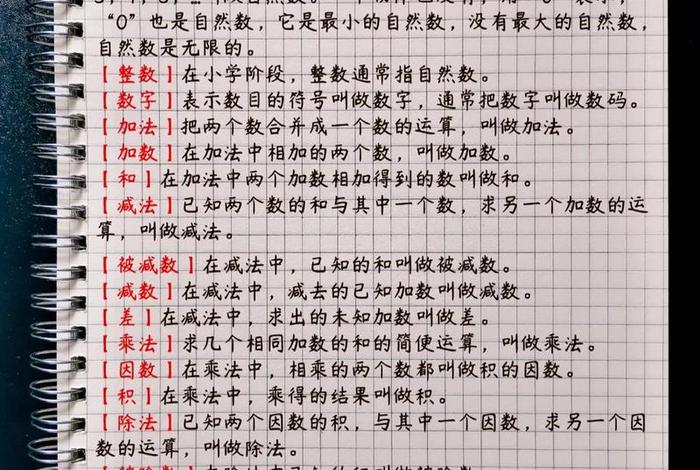 “0”也是自然数，它是最小的自然数，没有最大的自然数，
自然数是无限的。
【整数】在小学阶段，整数通常指自然数。
【数字】表示数目的符号叫做数字，通常把数字叫做数码。
【加法】把两个数合并成一个数的运算，叫做加法。
【加数】在加法中相加的两个数，叫做加数。
【和】在加法中两个加数相加得到的数叫做和。
【减法】已知两个数的和与其中一个数，求另一个加数的运
算，叫做减法。
【被减数】在减法中，已知的和叫做被减数。
【减数】在减法中，减去的已知加数叫做减数。
【差】在减法中，求出的未知加数叫做差。
【乘法】求几个相同加数的和的简便运算，叫做乘法。
【因数】在乘法中，相乘的两个数都叫做积的因数。
【积】在乘法中，乘得的结果叫做积。
【除法】已知两个因数的积，与其中一个因数，求另一个因
数的运算，叫做除法。